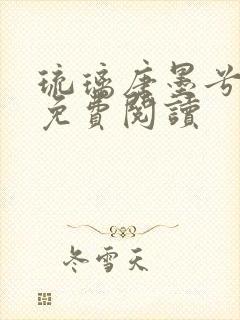 琉璃唐墨兮
免費閱讀
冬雪天